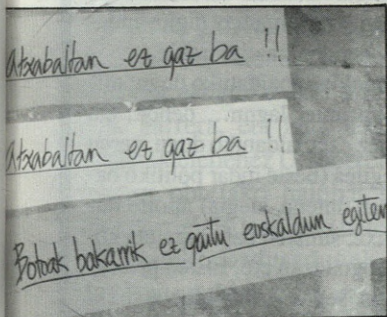 Atxabaltan ez gaz ba !!
Atxabaltan ez gaz ba !!
Botoak bakarrik ez gaitu euskaldun egiten